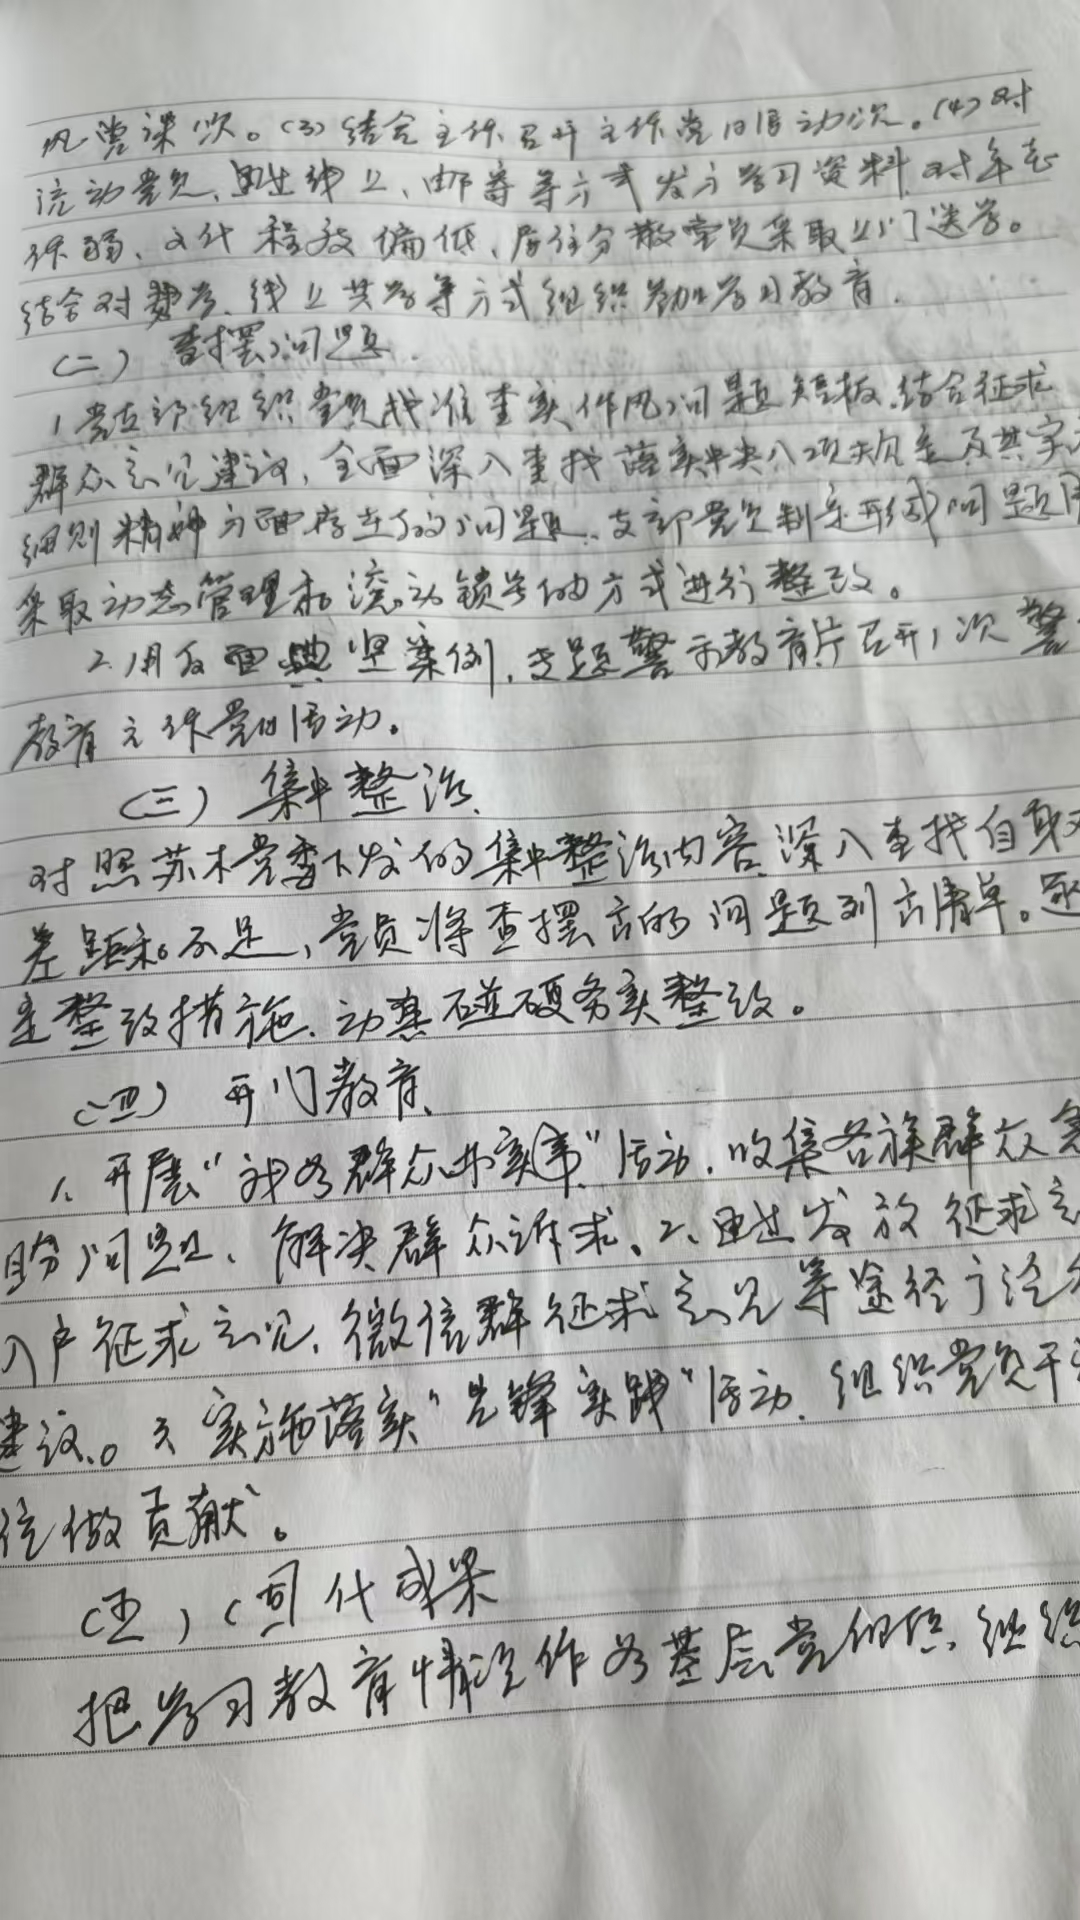 风党课 次。(3)结合主体召开主题党日活动 次。(4)对
流动党员,通过线上、邮寄等方式发放学习资料,对年老
体弱、文化程度偏低、居住分散党员采取上门送学。
结合对 学、线上共学等方式组织参加学习教育。
(二) 查摆问题.
1.党支部组织党员找准查实作风问题短板.结合征求
群众意见建议,全面深入查找落实中央八项规定及其实
细则精神方面存在的问题.支部党员制定形成问题
采取动态管理和滚动销号的方式进行整改。
2.用反面典型案例,专题警示教育片召开1次警
教育主体党日活动。
(三) 集中整治.
对照苏木党委下发的集中整治内容.深入查找自身
差距和不足,党员将查摆出的问题列出清单。逐
定整改措施.动真碰硬务实整改。
(四) 开门教育.
1.开展“我为群众办实事”活动.收集各族群众急
盼问题、解决群众诉求。2.通过发放征求意
入户征求意见,微信群征求意见等途径广泛
建议。3 实施落实“先锋实践”活动.组织党员干
位做贡献。
(五)(固化成果
把学习教育情况作为基层党组织.组织